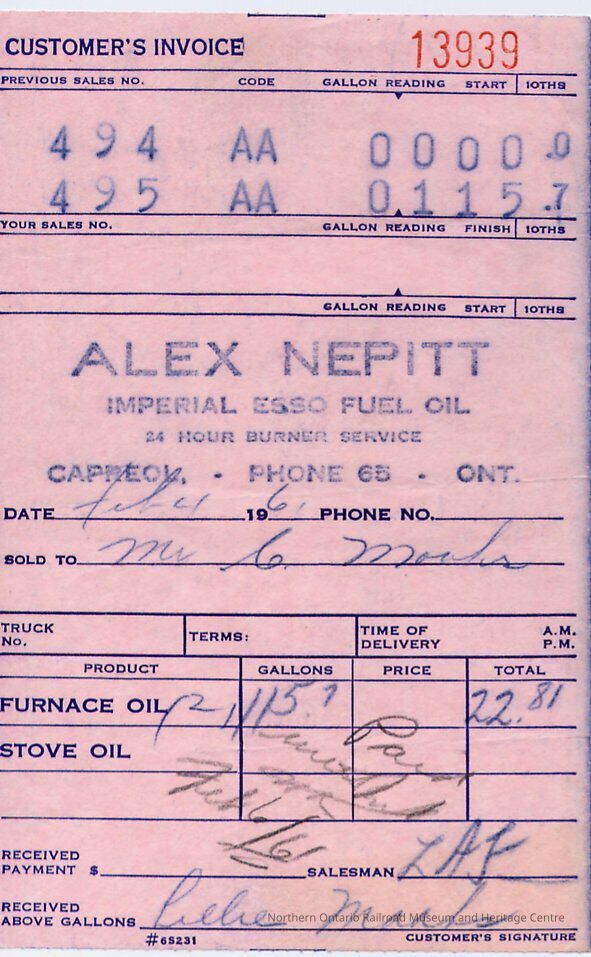 CUSTOMER'S INVOICE 13939
PREVIOUS SALES NO. CODE GALLON READING START 10THS
494 AA 0000.0
495 AA 0115.7
YOUR SALES NO. GALLON READING FINISH 10THS
GALLON READING START 10THS
ALEX NEPITT
IMPERIAL ESSO FUEL OIL
24 HOUR BURNER SERVICE
CAPREOL, - PHONE 65 - ONT.
DATE Feb 4 1961 PHONE NO.
SOLD TO Mr C. Monks
TRUCK NO. TERMS: TIME OF DELIVERY A.M. P.M.
PRODUCT GALLONS PRICE TOTAL
FURNACE OIL 115.7 22.81
STOVE OIL
Paid
Feb 6/61
RECEIVED PAYMENT $ SALESMAN
RECEIVED ABOVE GALLONS Monks
#65231 CUSTOMER'S SIGNATURE
Northern Ontario Railroad Museum and Heritage Centre